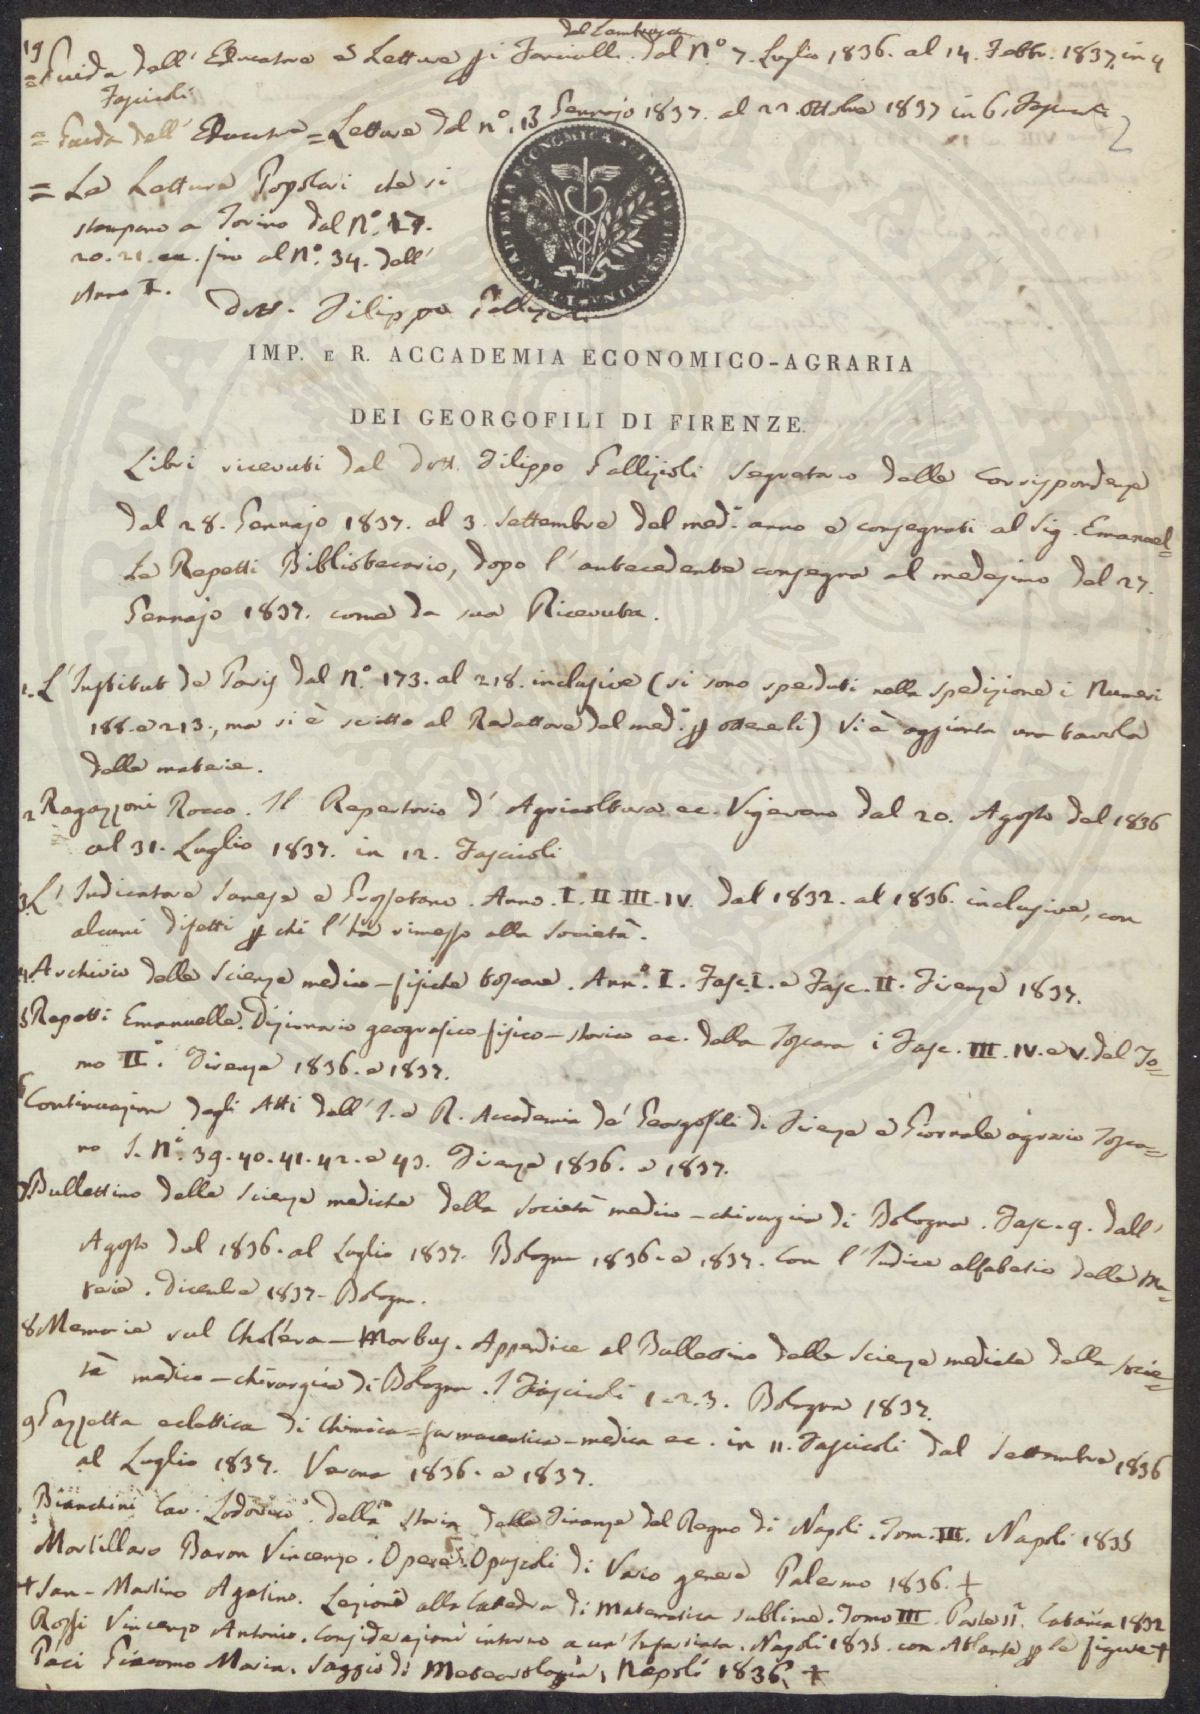 19
del Lambruschini
= Guida dell' Educatore e Letture pi Fanciulli. dal N.° 7. Luglio 1836. al 14. Febbr. 1837. in 4
Fascicoli
= Guida dell' Educatore = Letture dal n°. 13 Gennajo 1837. al 22 Ottobre 1837 in 6. Fascicoli
= Le Letture Popolari che si
stampano a Torino dal N.° 17.
20. 21. ec. fino al N.° 34. dell'
Anno I.
Dott. Filippo Gallizioli
I. E R. ACCADEMIA ECONOMICA AGRARIA FIORENTINA
IMP. E R. ACCADEMIA ECONOMICO-AGRARIA
DEI GEORGOFILI DI FIRENZE.
Libri ricevuti dal Dott. Filippo Gallizioli Segretario delle Corrispondenze
dal 28. Gennajo 1837. al 3. Settembre del med.° anno e consegnati al Sig. Emanuel=
le Repetti Bibliotecario, dopo l'antecedente consegna al medesimo del 27.
Gennajo 1837. come da sua Ricevuta.
1. L'Institut de Paris dal N.° 173. al 218. inclusive (si sono perduti nella spedizione i Numeri
188. e 213., ma si è scritto al Redattore del med.° p ottenerli) Vi è aggiunta una tavola
delle materie.
2 Ragazzoni Rocco. Il Repertorio d'Agricoltura ec. Vigevano dal 20. Agosto del 1836
al 31. Luglio 1837. in 12. Fascicoli
3. L'Indicatore Sanese e Grossetano. Anno. I. II. III. IV. dal 1832. al 1836. inclusive, con
alcuni difetti p chi l'ha rimesso alla Società.
4. Archivio delle Scienze medico-fisiche toscane. Ann.° I. Fasc. I. e Fasc. II. Firenze 1837.
5 Repetti Emanuelle. Dizionario geografico fisico-storico ec. della Toscana i Fasc. III. IV. e V. del To=
mo II°. Firenze 1836. e 1837.
6 Continuazione degli Atti dell' I. e R. Accademia de' Georgofili di Firenze e Giornale agrario Tosca=
no I. N.i 39. 40. 41. 42. e 43. Firenze 1836. e 1837.
7 Bullettino delle Scienze mediche della Società medico-chirurgica di Bologna. Fasc. 9. dall'
Agosto del 1836. al Luglio 1837. Bologna 1836. e 1837. Con l'Indice alfabetico delle Ma=
terie. Dicembre 1837 - Bologna.
8 Memorie sul Choléra-Morbus. Appendice al Bullettino delle Scienze mediche della Socie=
tà medico-chirurgica di Bologna. I Fascicoli 1. e 2. 3. Bologna 1837.
9 Gazzetta eclettica di Chimica-farmaceutica-medica ec. in 11. Fascicoli dal Settembre 1836
al Luglio 1837. Verona 1836. e 1837.
Bianchini Cav. Lodovico. della storia delle Finanze del Regno di Napoli. Tom. III. Napoli 1835
Mortillaro Baron Vincenzo. Opere. Opuscoli di Vario genere Palermo 1836. +
+ San-Martino Agatino. Lezioni alla Cattedra di Matematica sublime. Tomo III. Parte II.a Catania 1832
Rossi Vincenzo Antonio. Considerazioni intorno a un' Infarciata. Napoli 1835. con Atlante p le figure +
Paci Giacomo Maria. Saggio di Meteorologia, Napoli 1836, +